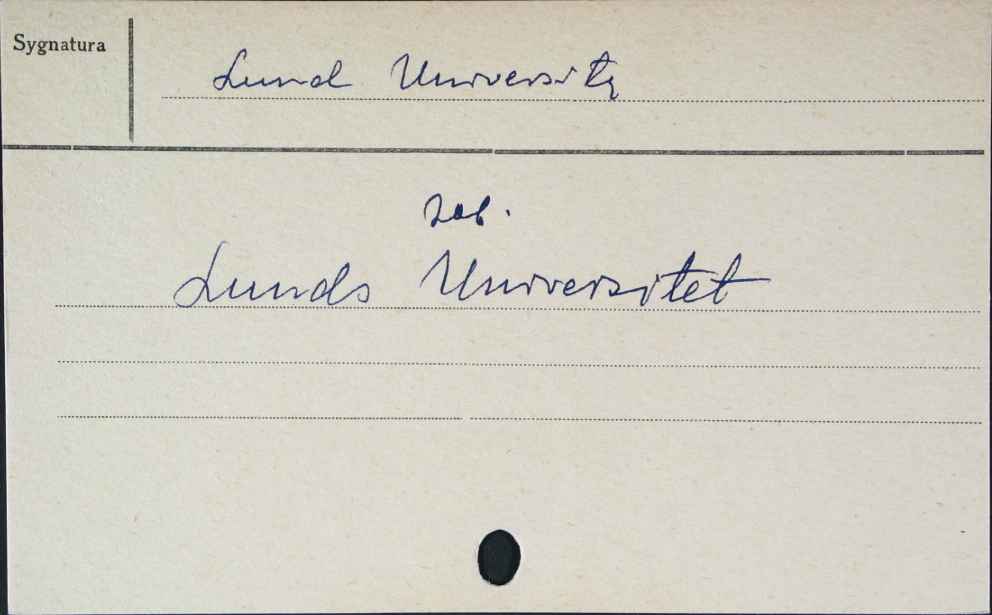 Sygnatura
Lund University
zob.
Lunds Universitet